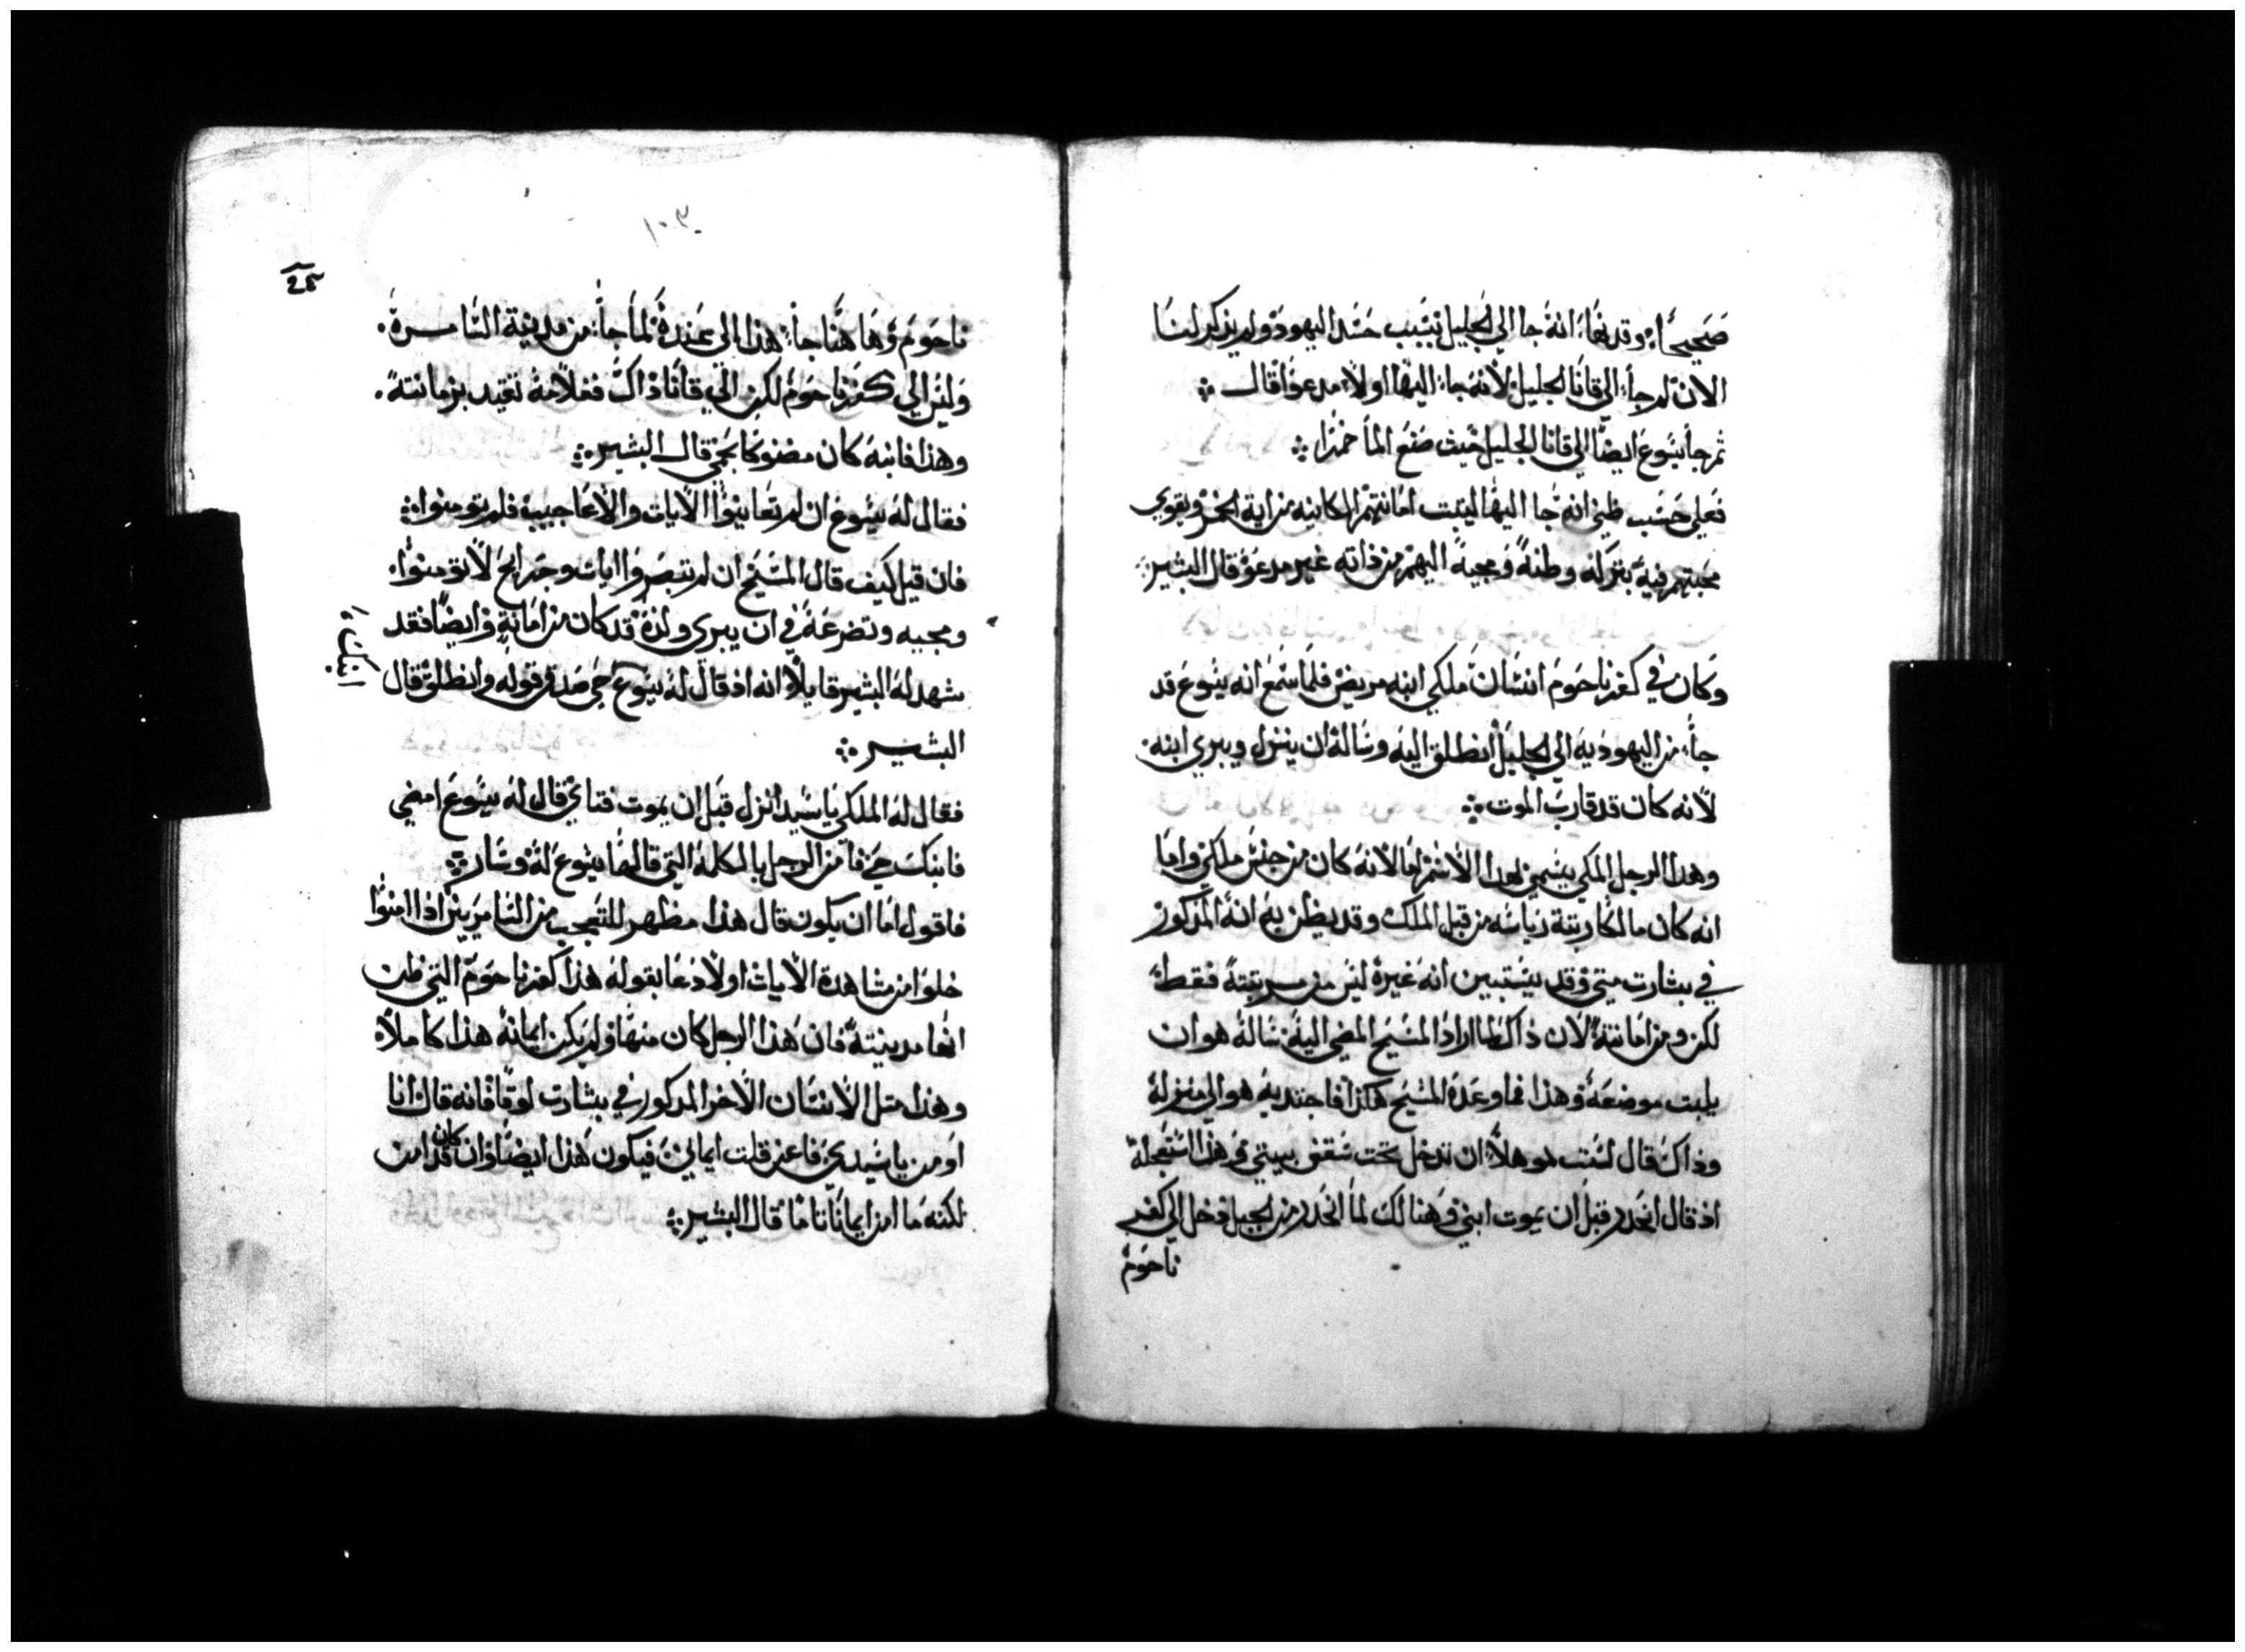 صحيحاً وقد نفهأ انه جا الي الجليل بسبب حسد اليهود ولم يذكر لنا
الان لم جأ الي قانا الجليل لانه جاء اليها اولاً مدعوا قال ܀
ثم جأ يسوع ايضاً الي قانا الجليل حيث صنع المأ خمراً ܀
فعلي حسب ظني انه جا اليها ليتبت امانتهم الكاينه من اية الخمر ويقوي
محبتهم فيه بتركه وطنه ومجيه اليهم من ذاته غير مدعو قال البشير
وكان في كفرناحوم انسان ملكي ابنه مريض فلما سمع انه يسوع قد
جأ من اليهوديه الي الجليل انطلق اليه وساله ان ينزل ويبري ابنه
لانه كان قد قارب الموت ܀
وهدا الرجل الملكي يسمي بهدا الاسم اما لانه كان من جنس ملكي واما
انه كان مالكا رتبة رياسه من قبل الملك وقد يظن به انه المدكور
في بشارت متي وقد يستبين انه غيره ليس من مرتبته فقط
لكن ومن امانته لان داك لما اراد المسيح المضي اليه ساله هو ان
يلبت موضعه وهذا فما وعده المسيح هكذا فاجتدبه هو الي منزله
وذاك قال لست موهلاً ان تدخل تحت سقف بيتي وهذا استعجله
اذ قال انحدر قبل ان يموت ابني وهنالك لما انحدر من الجبل دخل الي كفر
ناحوم
٢٤
ناحوم وها هنا جأ هذا الي عنده لما جأ من مدينة السامرة
وليس الي كفرناحوم لكن الي قانا وذاك فغلامه تقيد بزمانته
وهذا فابنه كان مضنوكا بحمي قال البشير ܀
فقال له يسوع ان لم تعاينوا الايات والاعاجيب فلم تومنوا ܀
فان قيل كيف قال المسيح ان لم تبصروا ايات وجرايح لا تومنوا
ومجيه وتضرعه في ان يبري ولده قد كان من امانه وايضاً فقد
شهد له البشير قايلاً انه اذ قال له يسوع حي صدق قوله وانطلق قال
ابنك
البشير ܀
فقال له الملكي يا سيد انزل قبل ان يموت فتاي قال له يسوع امضي
فابنك حي فامن الرجل بالكلمه التي قالها يسوع له وسار ܀
فاقول اما ان يكون قال هذا مظهر للتعجب من السامريين اذا امنوا
خلوا من مشاهدة الايات اولا دعا بقوله هذا كفرناحوم التي ظن
انها مدينته فان هذا الرجل كان منها ولم يكن ايمانه هذا كاملاً
وهذا متل الانسان الاخر المدكور في بشارت لوقا فانه قال انا
اومن يا سيدي فاعن قلت ايماني فيكون هذا ايضاً وان كان قد امن
لكنه ما امن ايماناً تاما قال البشير ܀